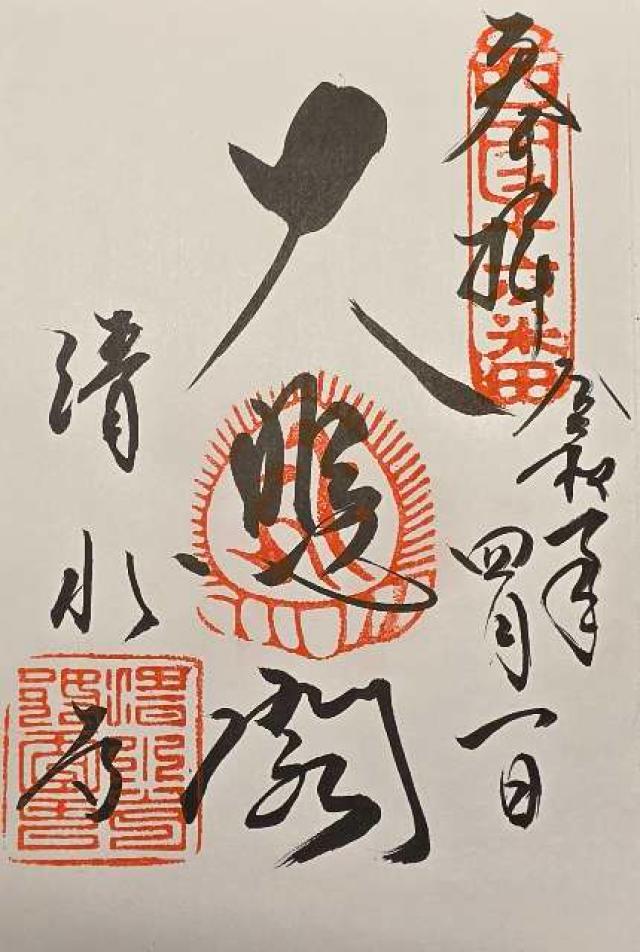 奉拝
西国十六番
令和年
四月一日
大悲閣
清水寺